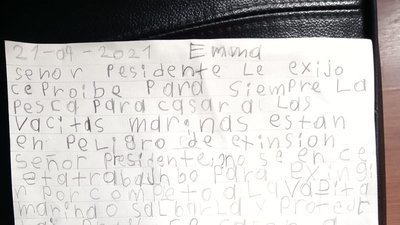 21-04-2021 Emma
señor Pesidente Le exijo
ceProibe Para siempre La
Pesca Para casar a Las
Vacitas marinas estan
en PeLigro de exinsion
señor Presidente no se en ce
Para exingi
r Por competo a La vaqita
marina o salbarla y Protect